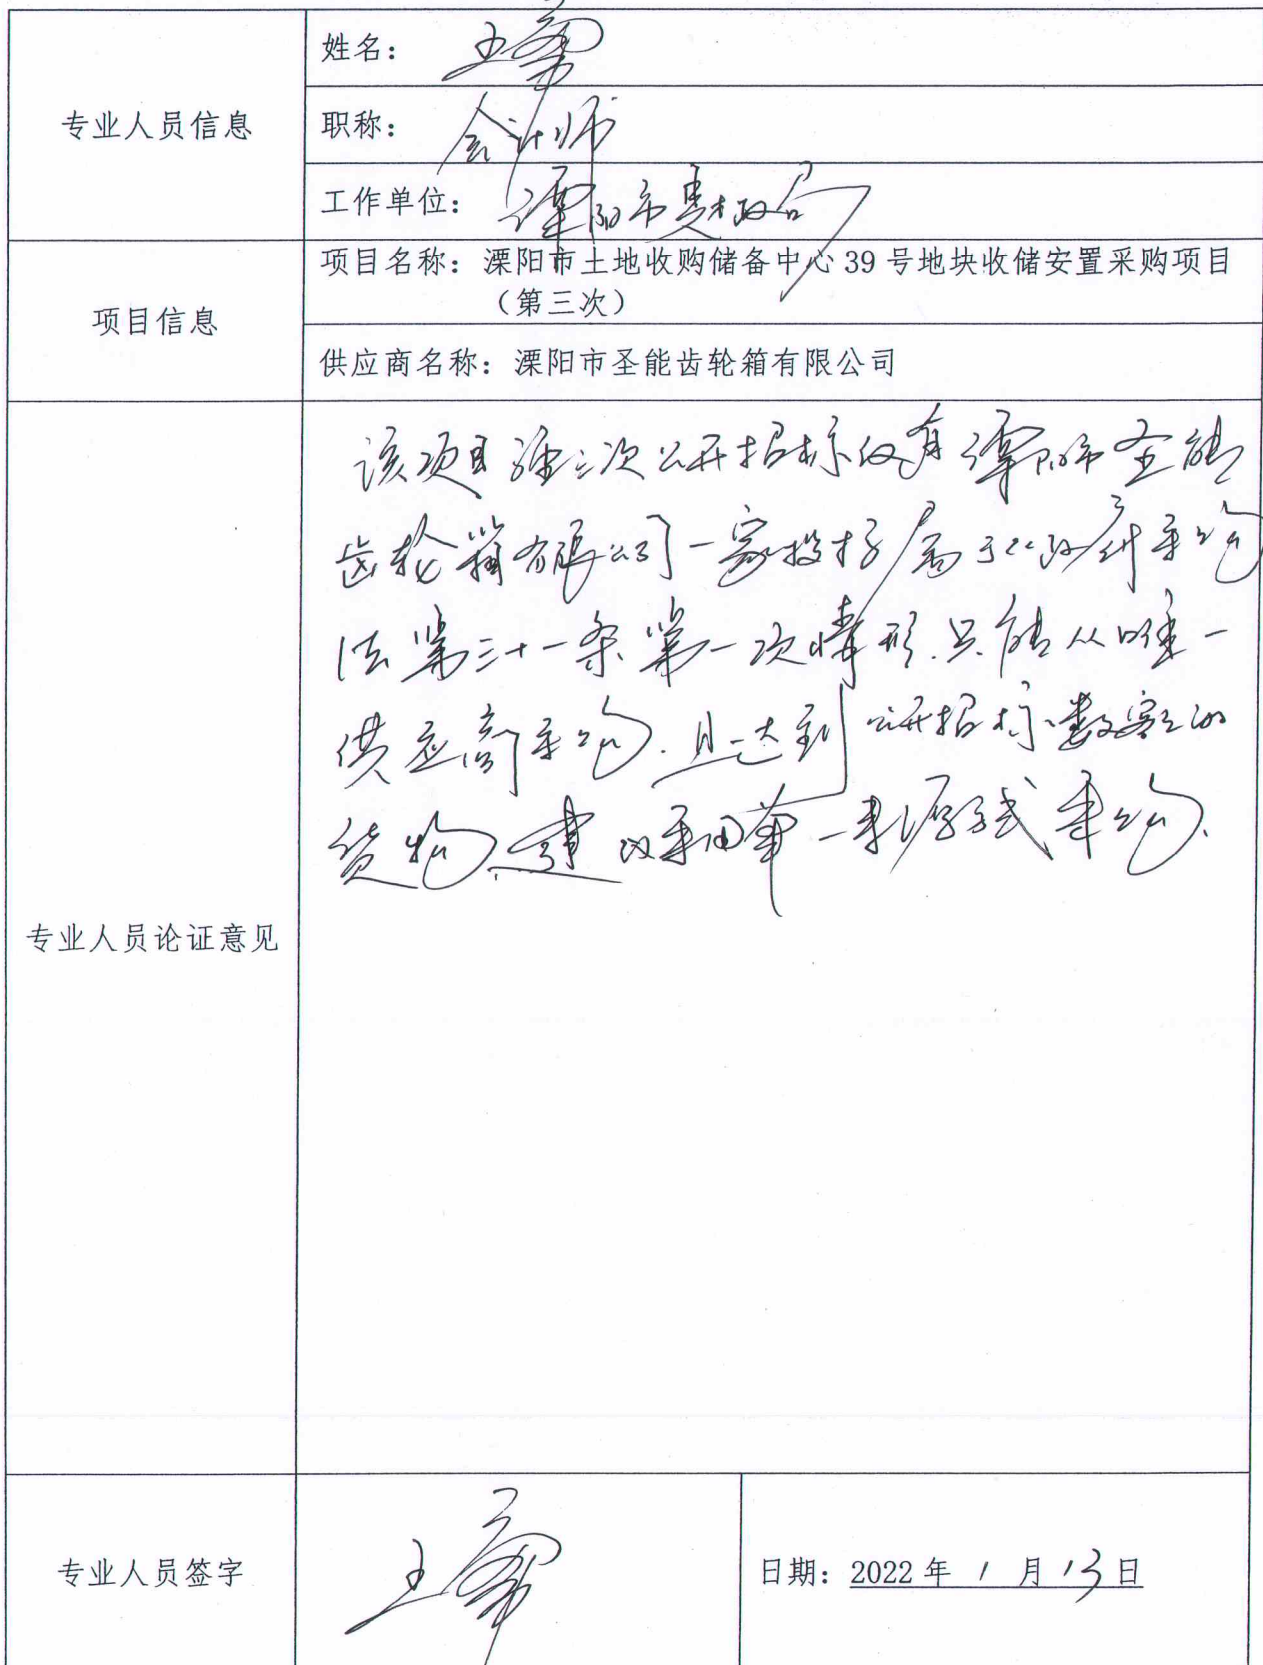 专业人员信息
姓名：王
职称：会计师
工作单位：溧阳市财政局
项目信息
项目名称：溧阳市土地收购储备中心 39 号地块收储安置采购项目
（第三次）
供应商名称：溧阳市圣能齿轮箱有限公司
专业人员论证意见
该项目经三次公开招标仅有溧阳市圣能
齿轮箱有限公司一家投标属于《政府采购
法第三十一条第一次情形.只能从唯一
供应商采购.且达到公开招标数额的
货物.建议采用单一来源方式采购.
专业人员签字
王
日期：2022 年 1 月 13 日